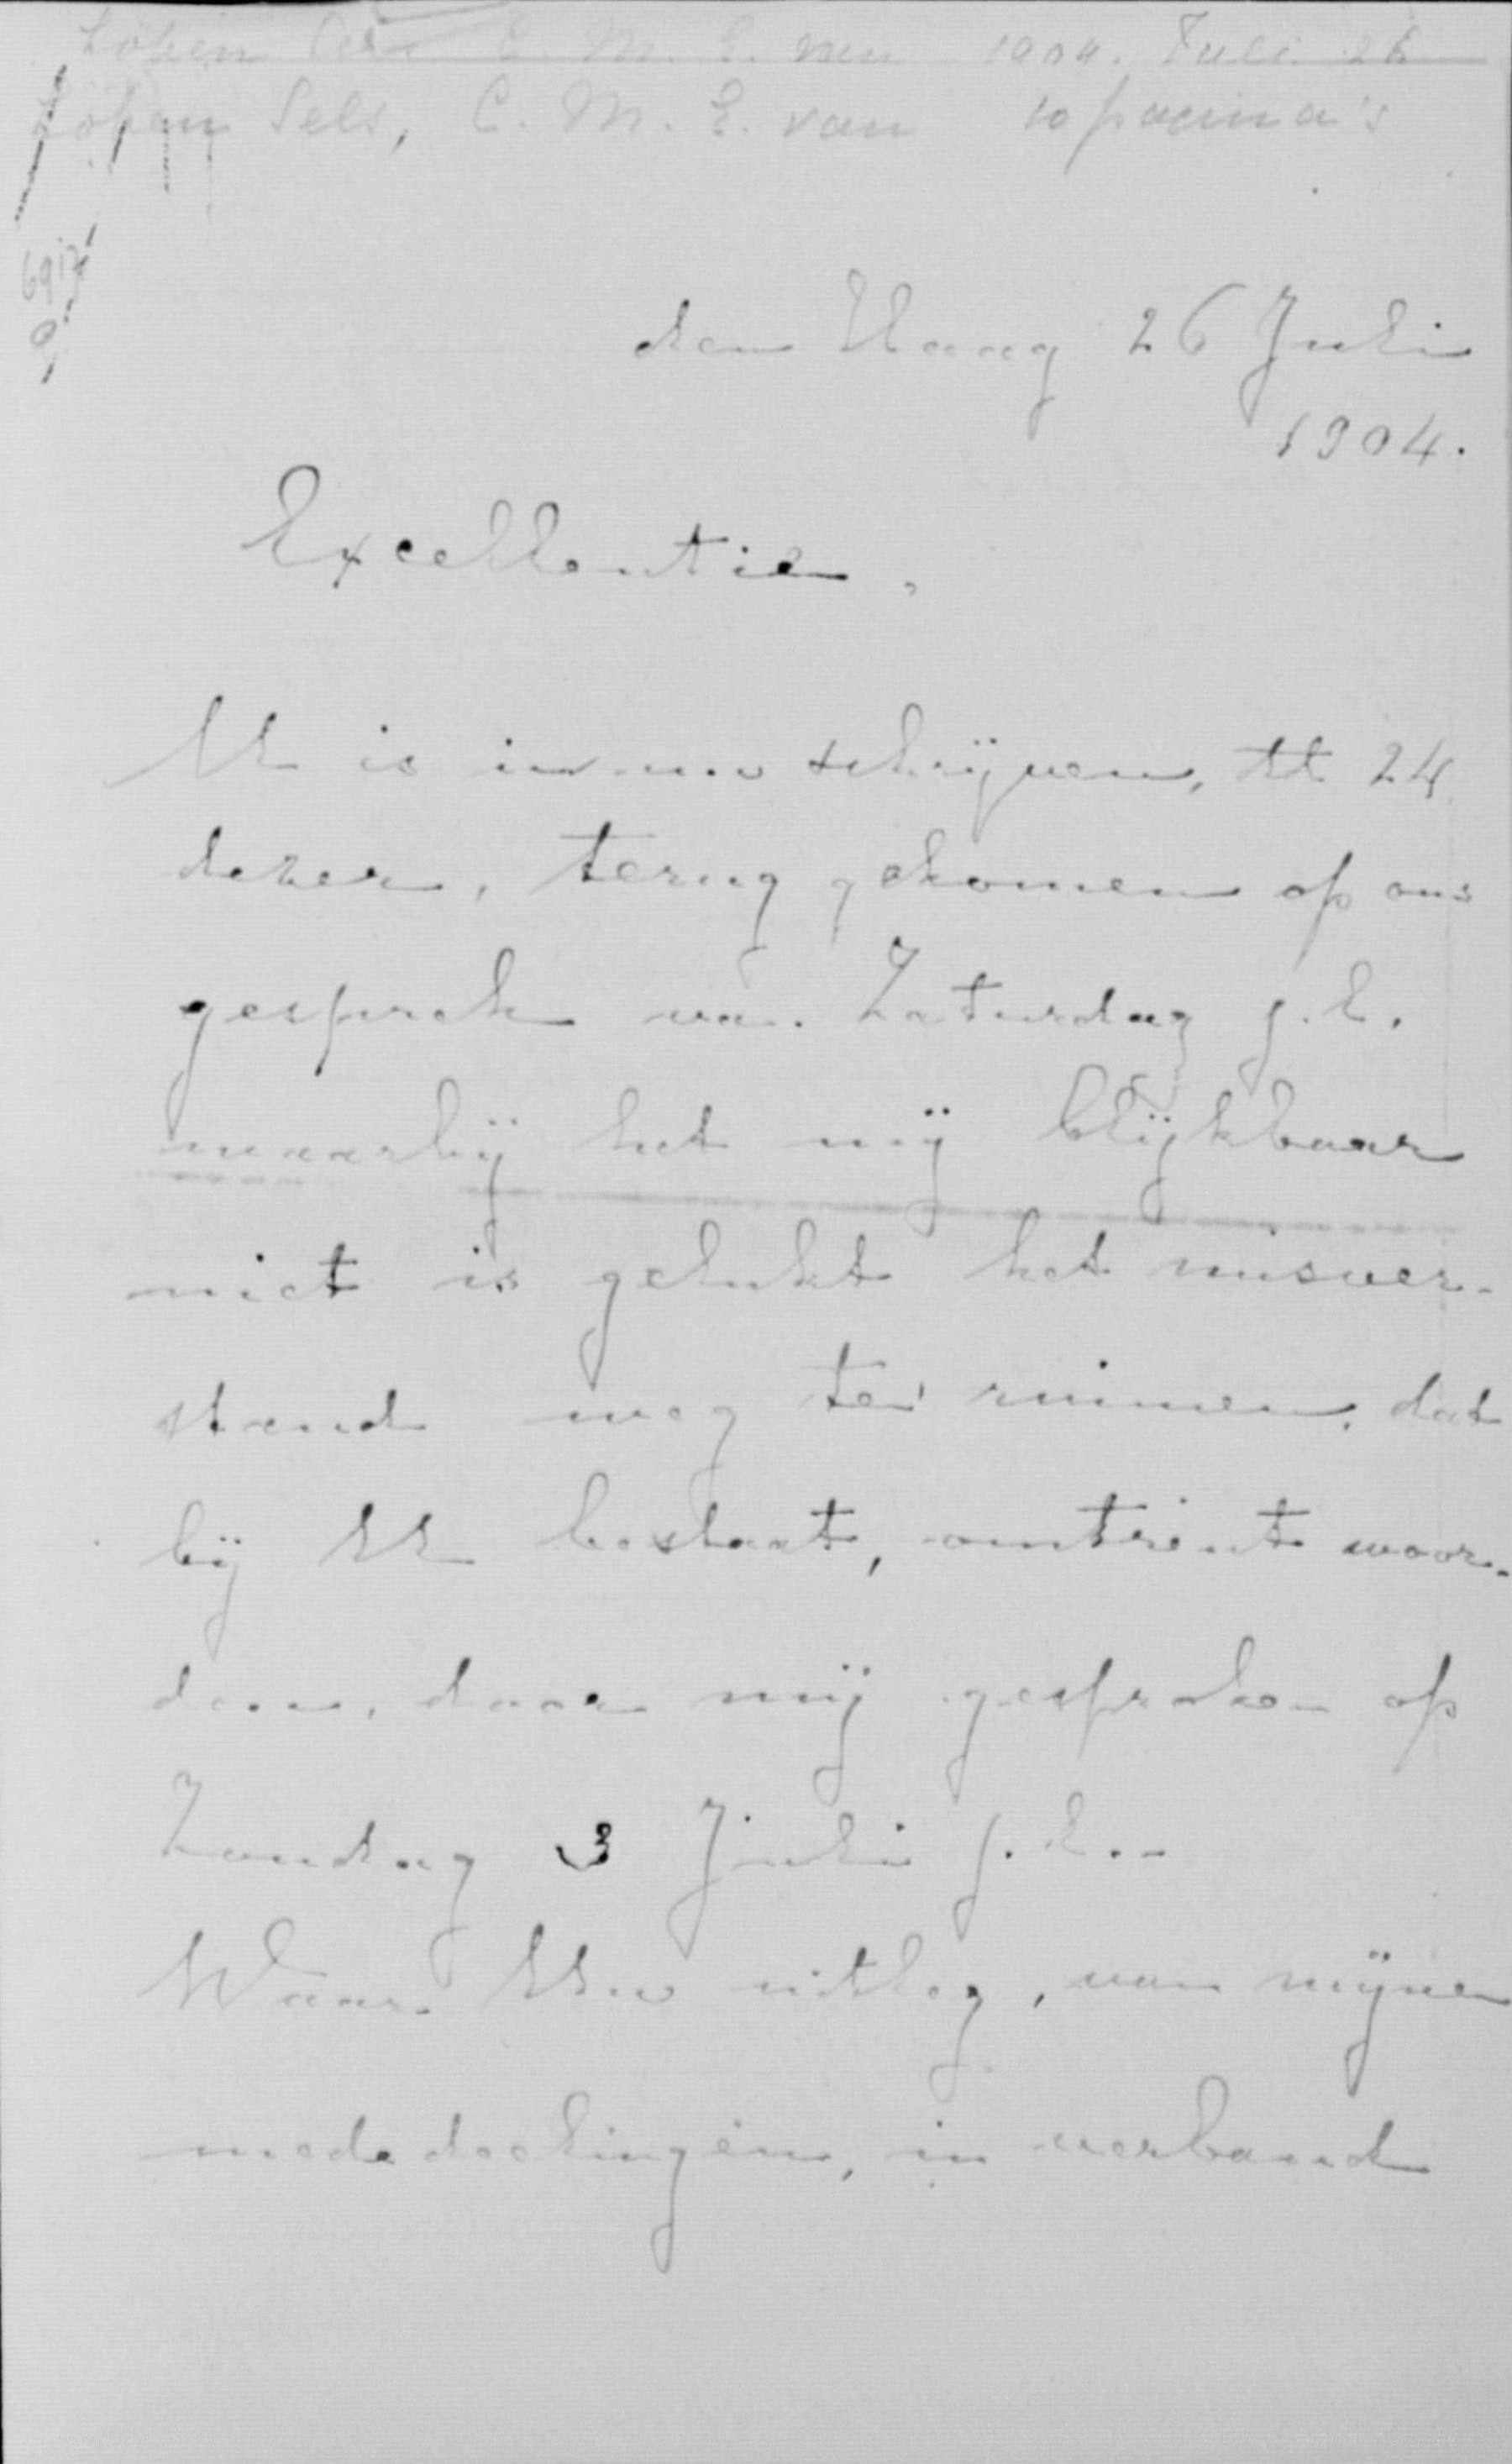 Löben Sels E. M. E. van 1904. Juli 26
Löben Sels, C. M. E. van 10 pagina's
den Haag 26 Juli
1904.
Excellentie,
UE is in uw schrijven, dd 24
dezer, terug gekomen op ons
gesprek van Zaturdag j.l.
waarbij het mij blijkbaar
niet is gelukt het misver-
stand weg te ruimen, dat
bij UE bestaat, omtrent woor-
den, door mij gesproken op
Zondag 3 Juli j.l.-
Waar UEw uitleg, van mijne
mededeelingen, in verband